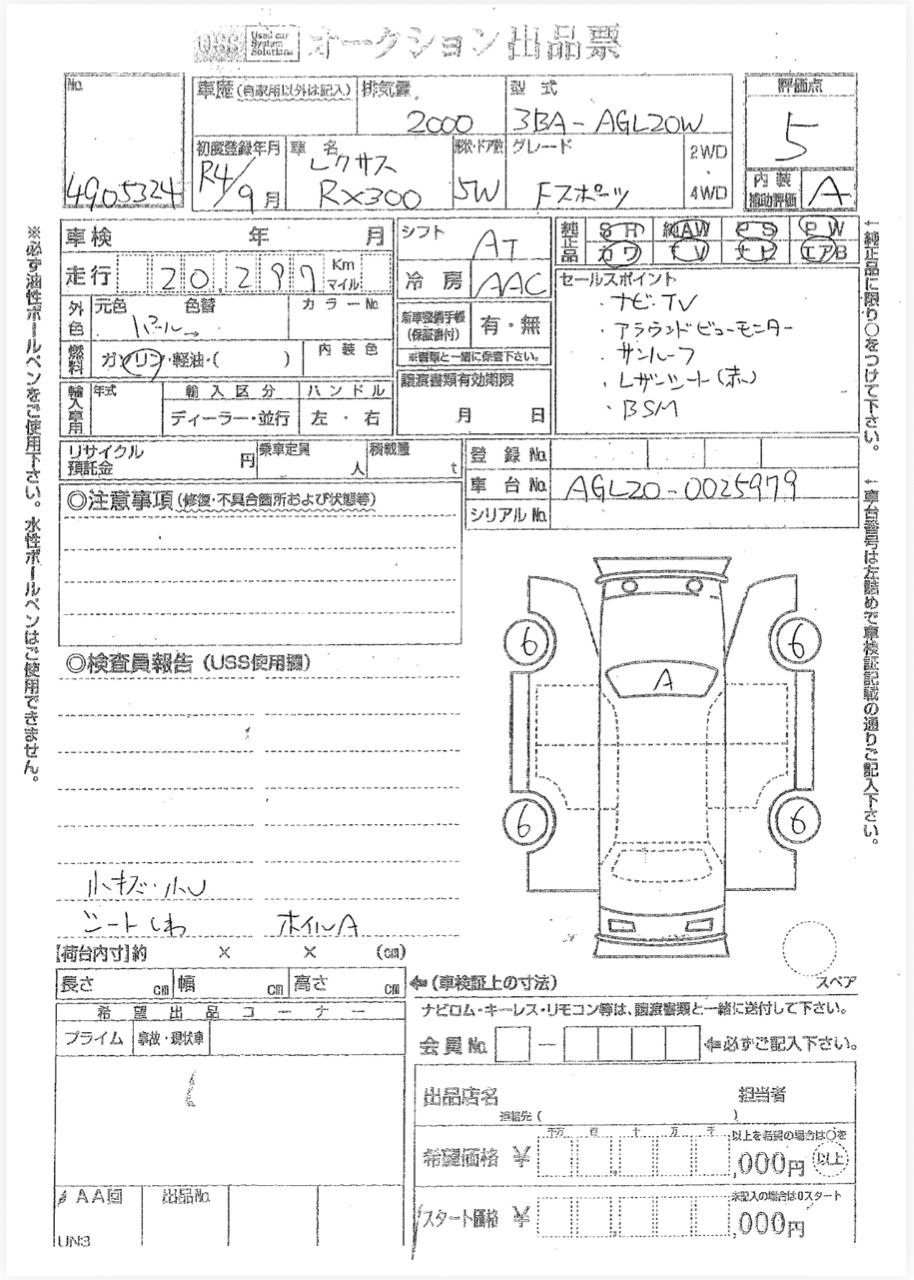 USS Used car System Solutions オークション出品票
No. 4905324
車歴(自家用以外は記入)
排気量 2000
型式 3BA-AGL20W
評価点 5
初度登録年月 R4/9月
車名 レクサス RX300
形状・ドア数 5W
グレード Fスポーツ
2WD・4WD
内装補助評価 A
車検 年 月
走行 20,297 Km マイル
シフト AT
冷房 AAC
純正品 SR 純AW PS PW
カワ TV ナビ エアB
外色 元色 色替 カラーNo.
パール→
燃料 ガソリン・軽油・( ) 内装色
新車整備手帳(保証書付) 有・無
※書類と一緒に保管下さい。
セールスポイント
・ナビ・TV
・アラウンドビューモニター
・サンルーフ
・レザーシート(赤)
・BSM
輸入車用 年式 輸入区分 ハンドル
ディーラー・並行 左・右
譲渡書類有効期限
月 日
リサイクル預託金 円 乗車定員 人 積載量 t
登録No.
車台No. AGL20-0025979
シリアルNo.
◎注意事項(修復・不具合箇所および状態等)
◎検査員報告(USS使用欄)
6 6
A
6 6
小キズ・小U
シートしわ ホイルA
スペア
【荷台内寸】約 × × (cm)
長さ cm 幅 cm 高さ cm
⇐(車検証上の寸法)
希望出品コーナー
プライム 事故・現状車
ナビロム・キーレス・リモコン等は、譲渡書類と一緒に送付して下さい。
会員No. ― ⇐必ずご記入下さい。
出品店名 担当者
連絡先( )
希望価格 ¥ 千万 百 十 万 千 ,000円
以上を希望の場合は○を 以上
スタート価格 ¥ ,000円
未記入の場合は0スタート
AA回 出品No.
UN3
※必ず油性ボールペンをご使用下さい。水性ボールペンはご使用できません。
↑純正品に限り○をつけて下さい。
↑車台番号は左詰めで車検証記載の通りご記入下さい。